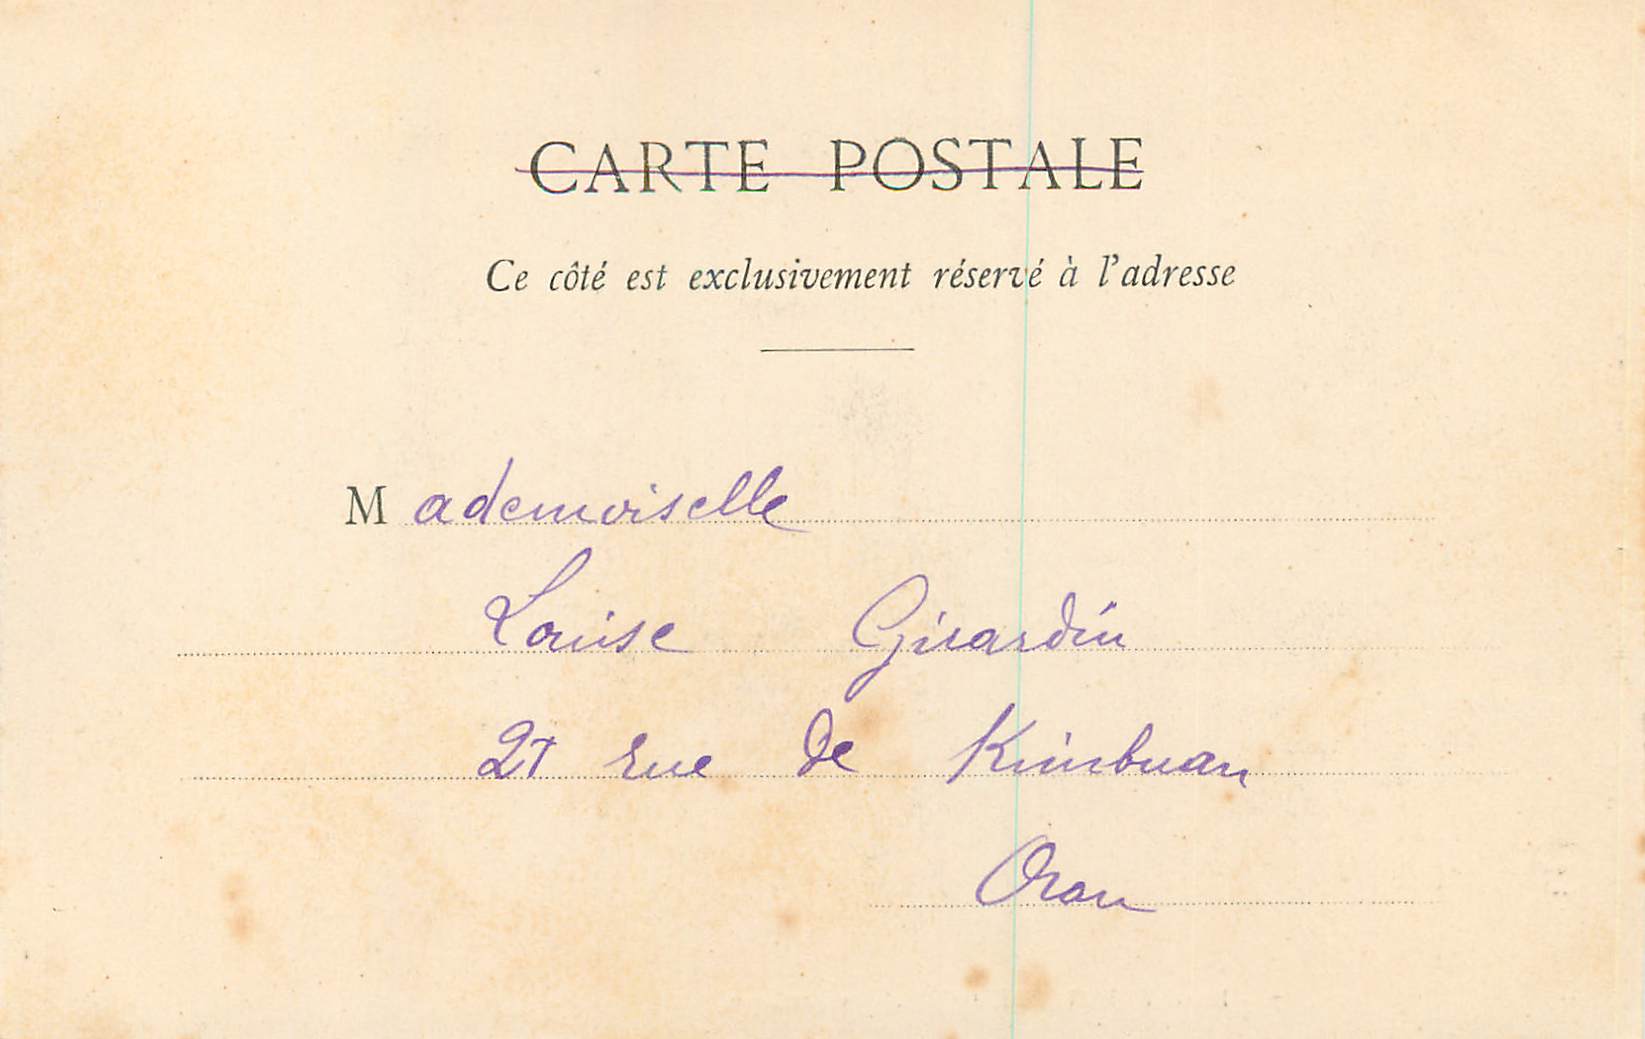 CARTE POSTALE
Ce côté est exclusivement réservé à l'adresse
Mademoiselle
Louise Girardin
27 rue de
Oran